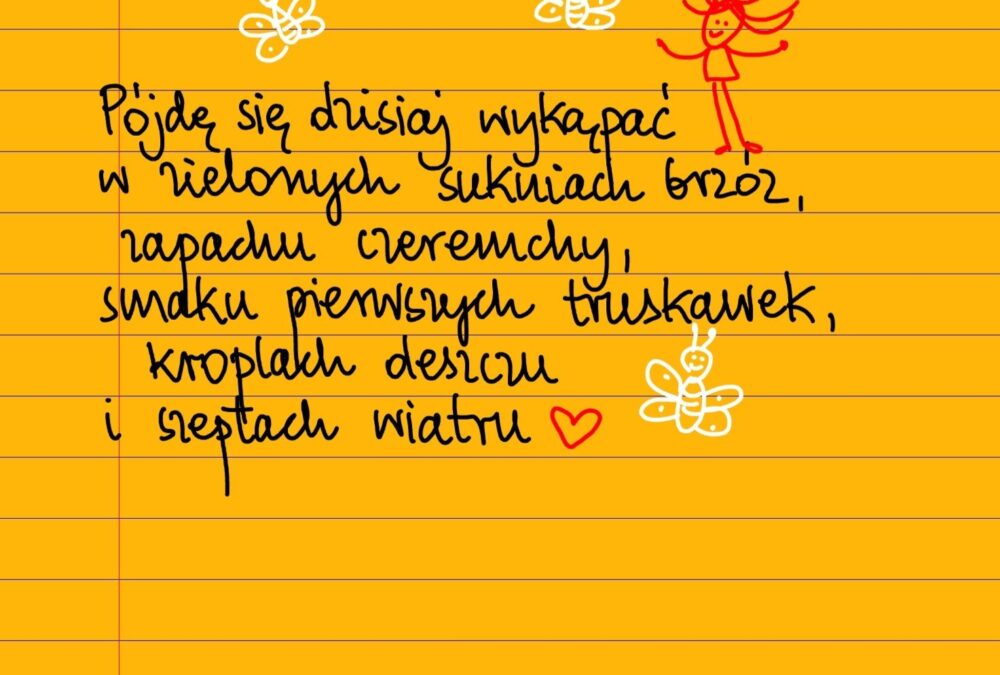 Pójdę się dzisiaj wykąpać
w zielonych sukniach brzóz,
zapachu czeremchy,
smaku pierwszych truskawek,
kroplach deszczu
i szeptach wiatru